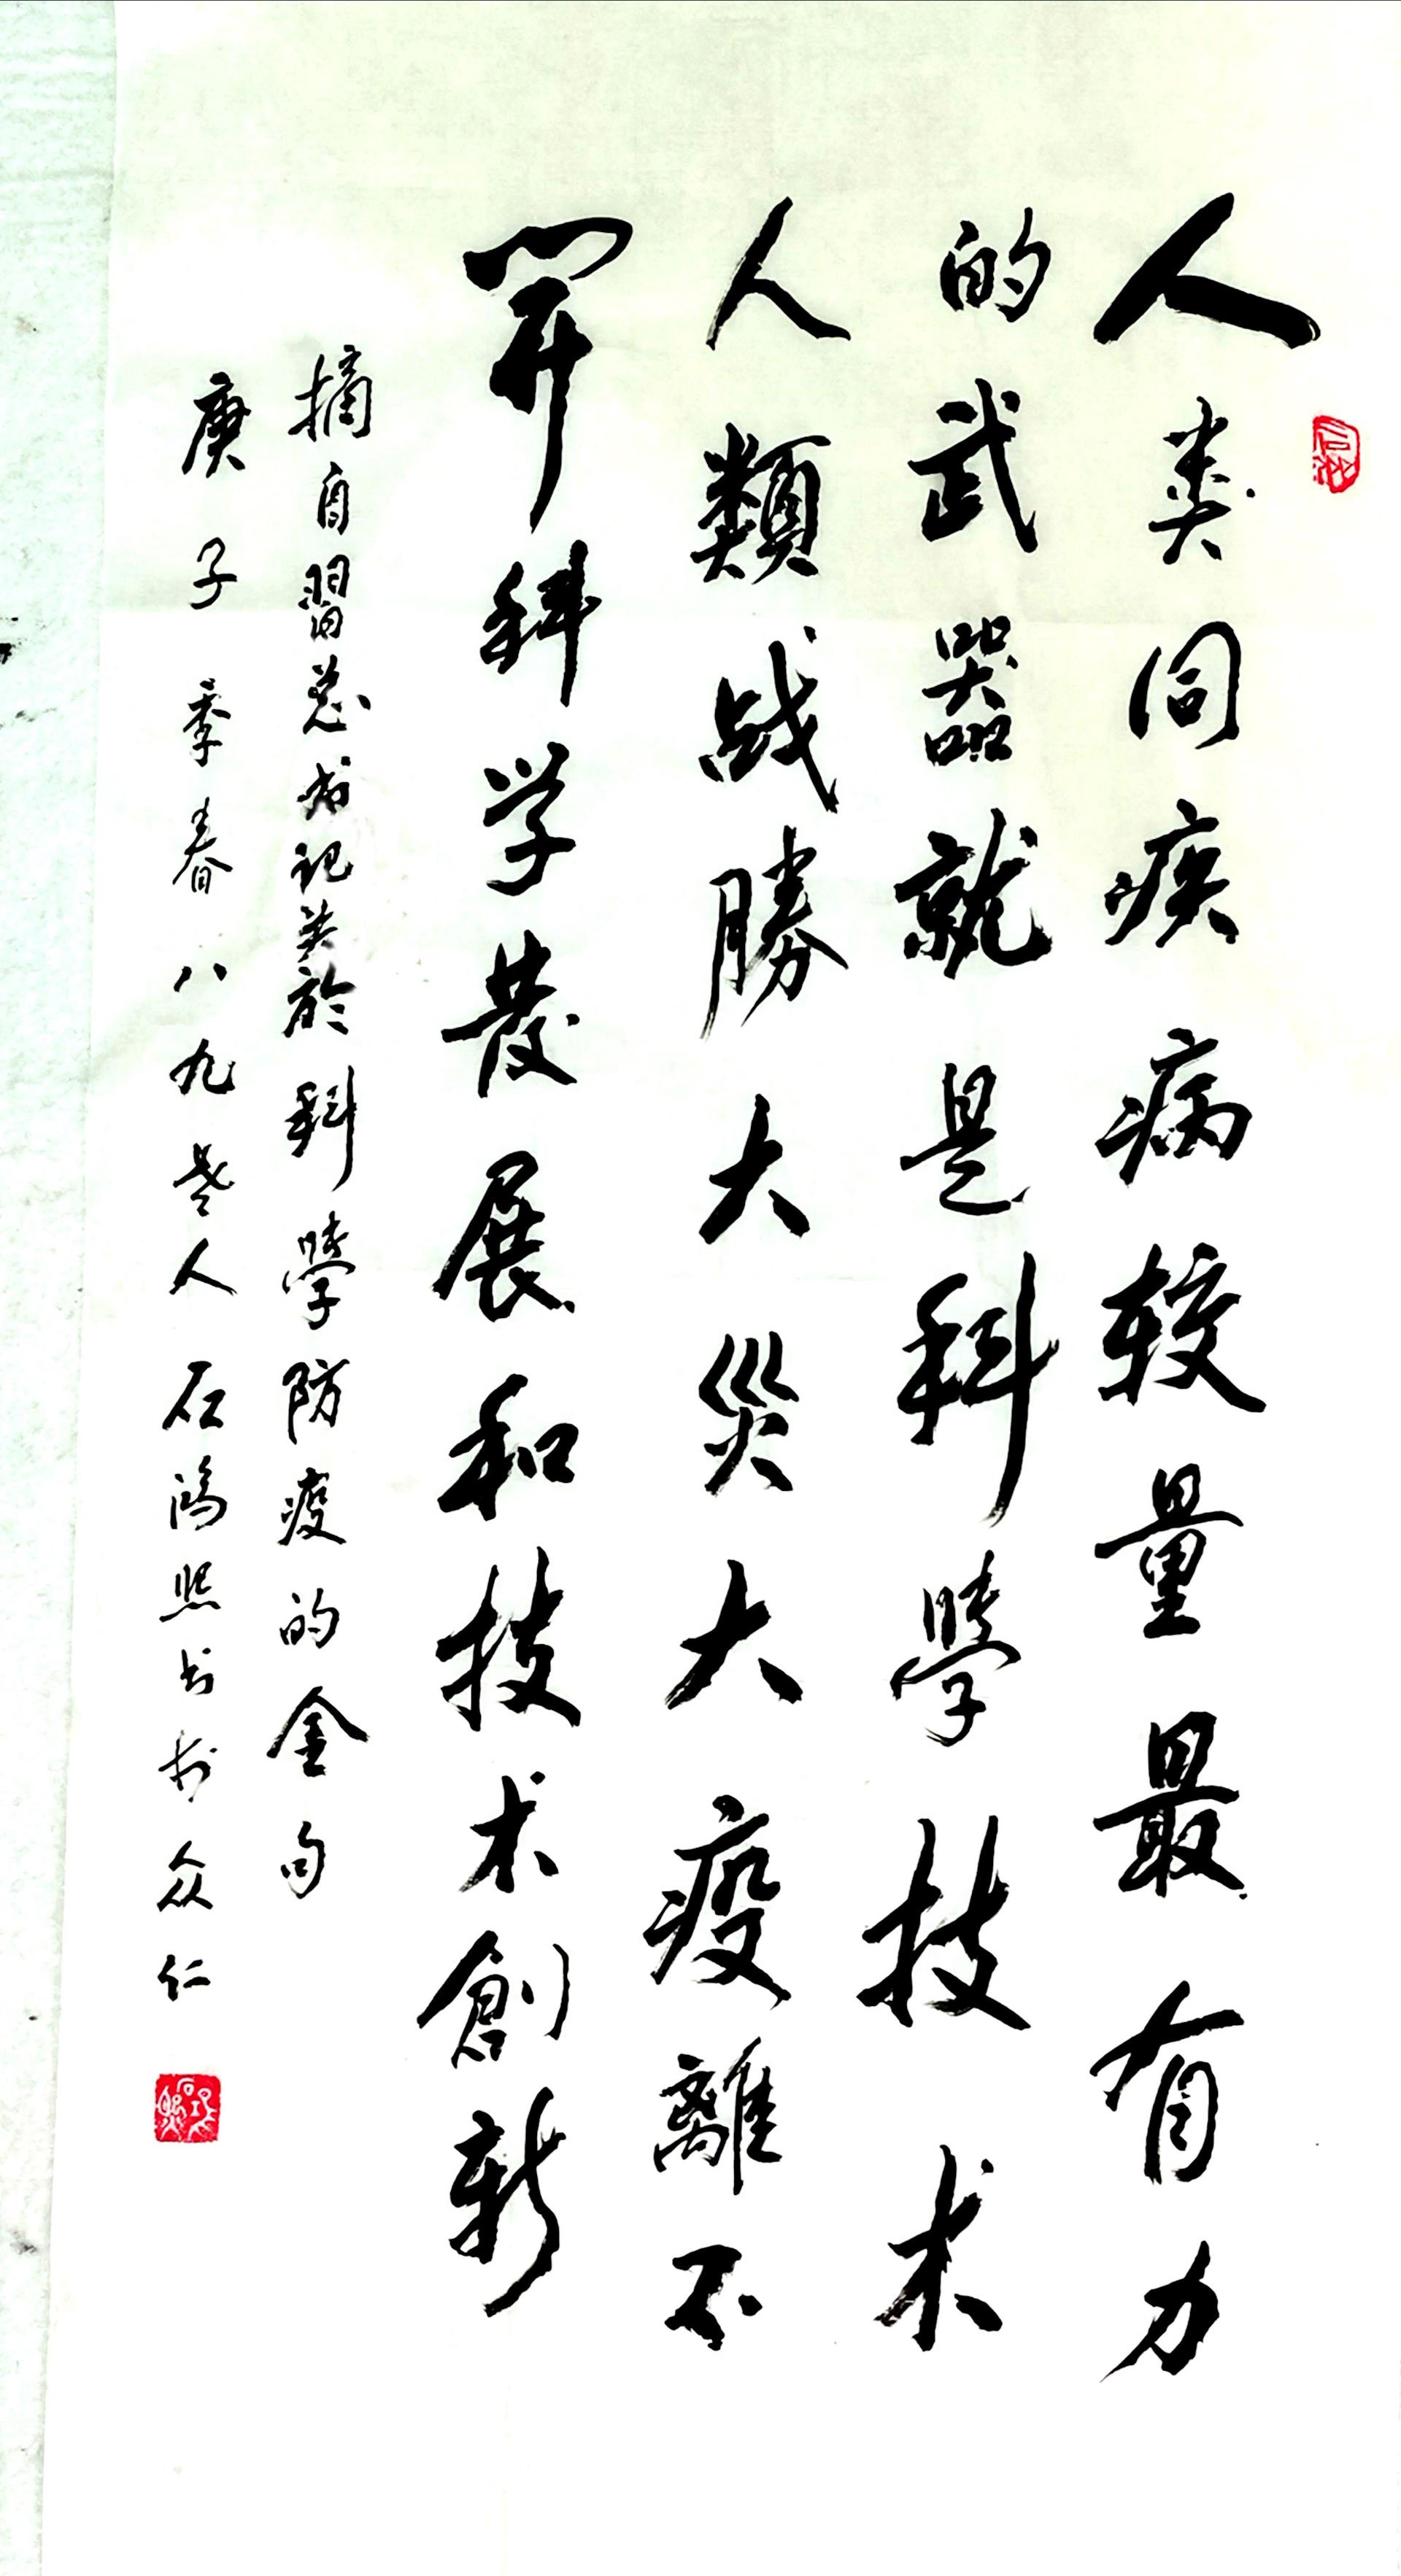 人类同疾病较量最有力
的武器就是科學技术
人類战勝大災大疫離不
開科学發展和技术創新
摘自習总书记关於科學防疫的金句
庚子季春八九老人石鴻熙书於众仁